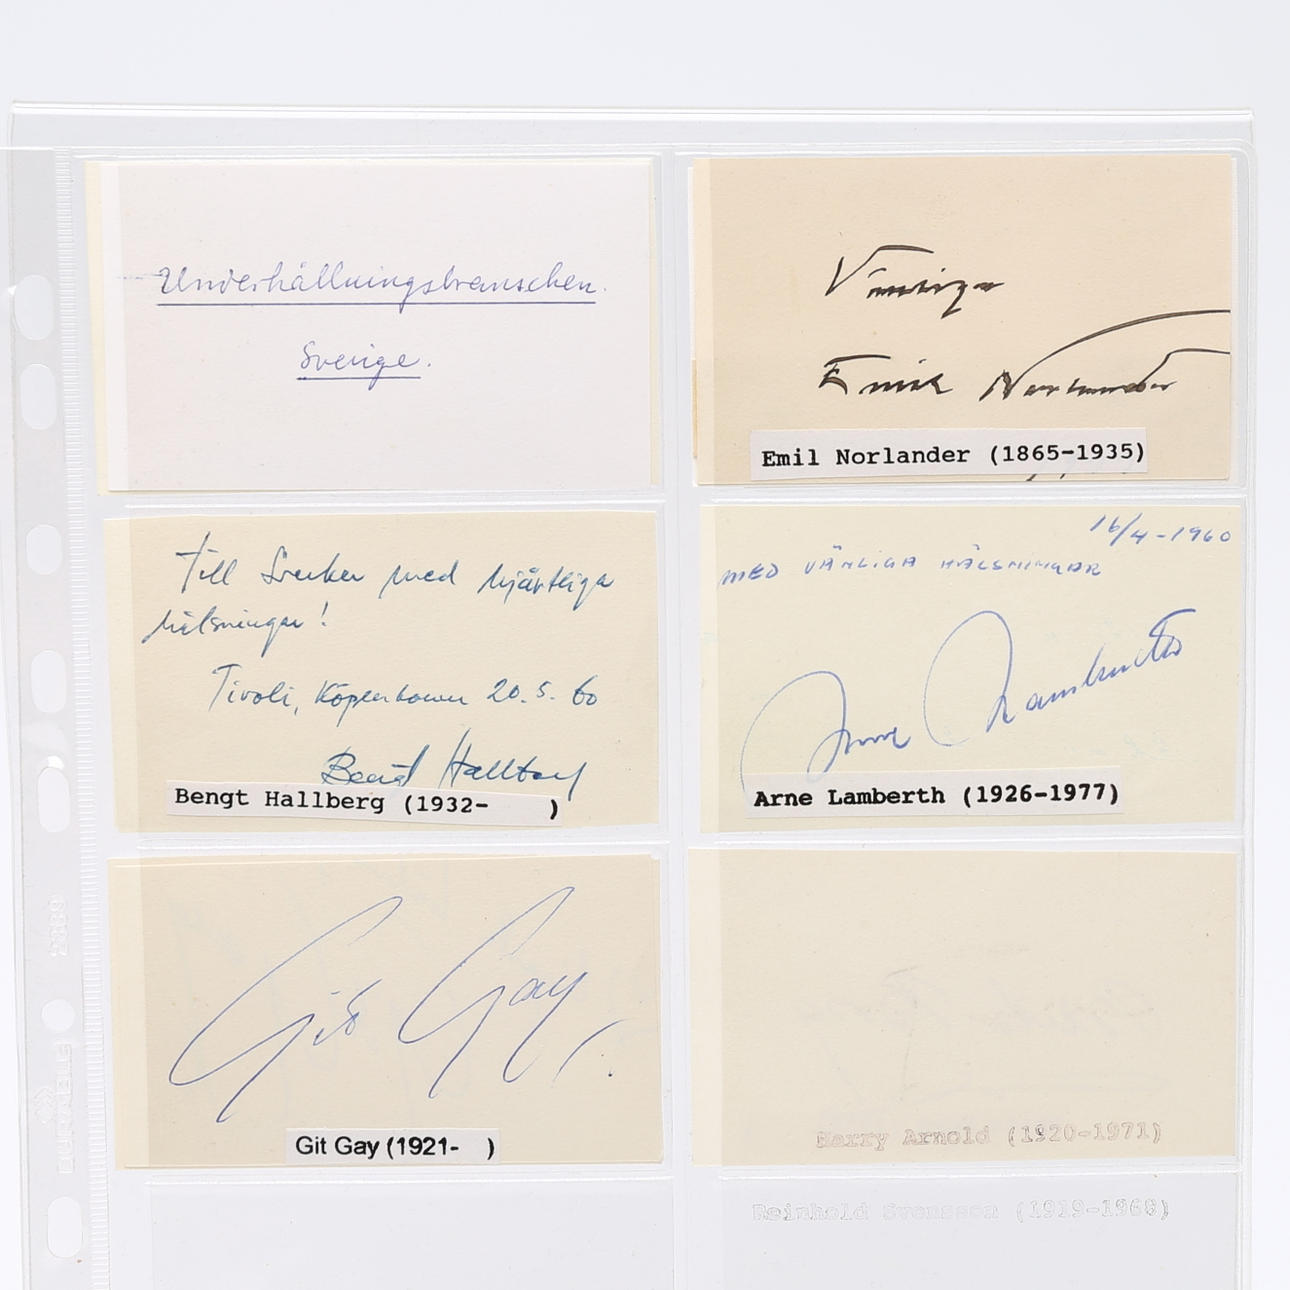 Underhållningsbranschen.
Sverige.
Vänliga
Emil Norlander
Emil Norlander (1865-1935)
Till Sverker med hjärtliga
hälsningar!
Tivoli, Köpenhamn 20.5.60
Bengt Hallberg
Bengt Hallberg (1932- )
16/4-1960
MED VÄNLIGA HÄLSNINGAR
Arne Lamberth
Arne Lamberth (1926-1977)
Git Gay
Git Gay (1921- )
Harry Arnold (1920-1971)
Reinhold Svensson (1919-1968)
2389
DURABLE